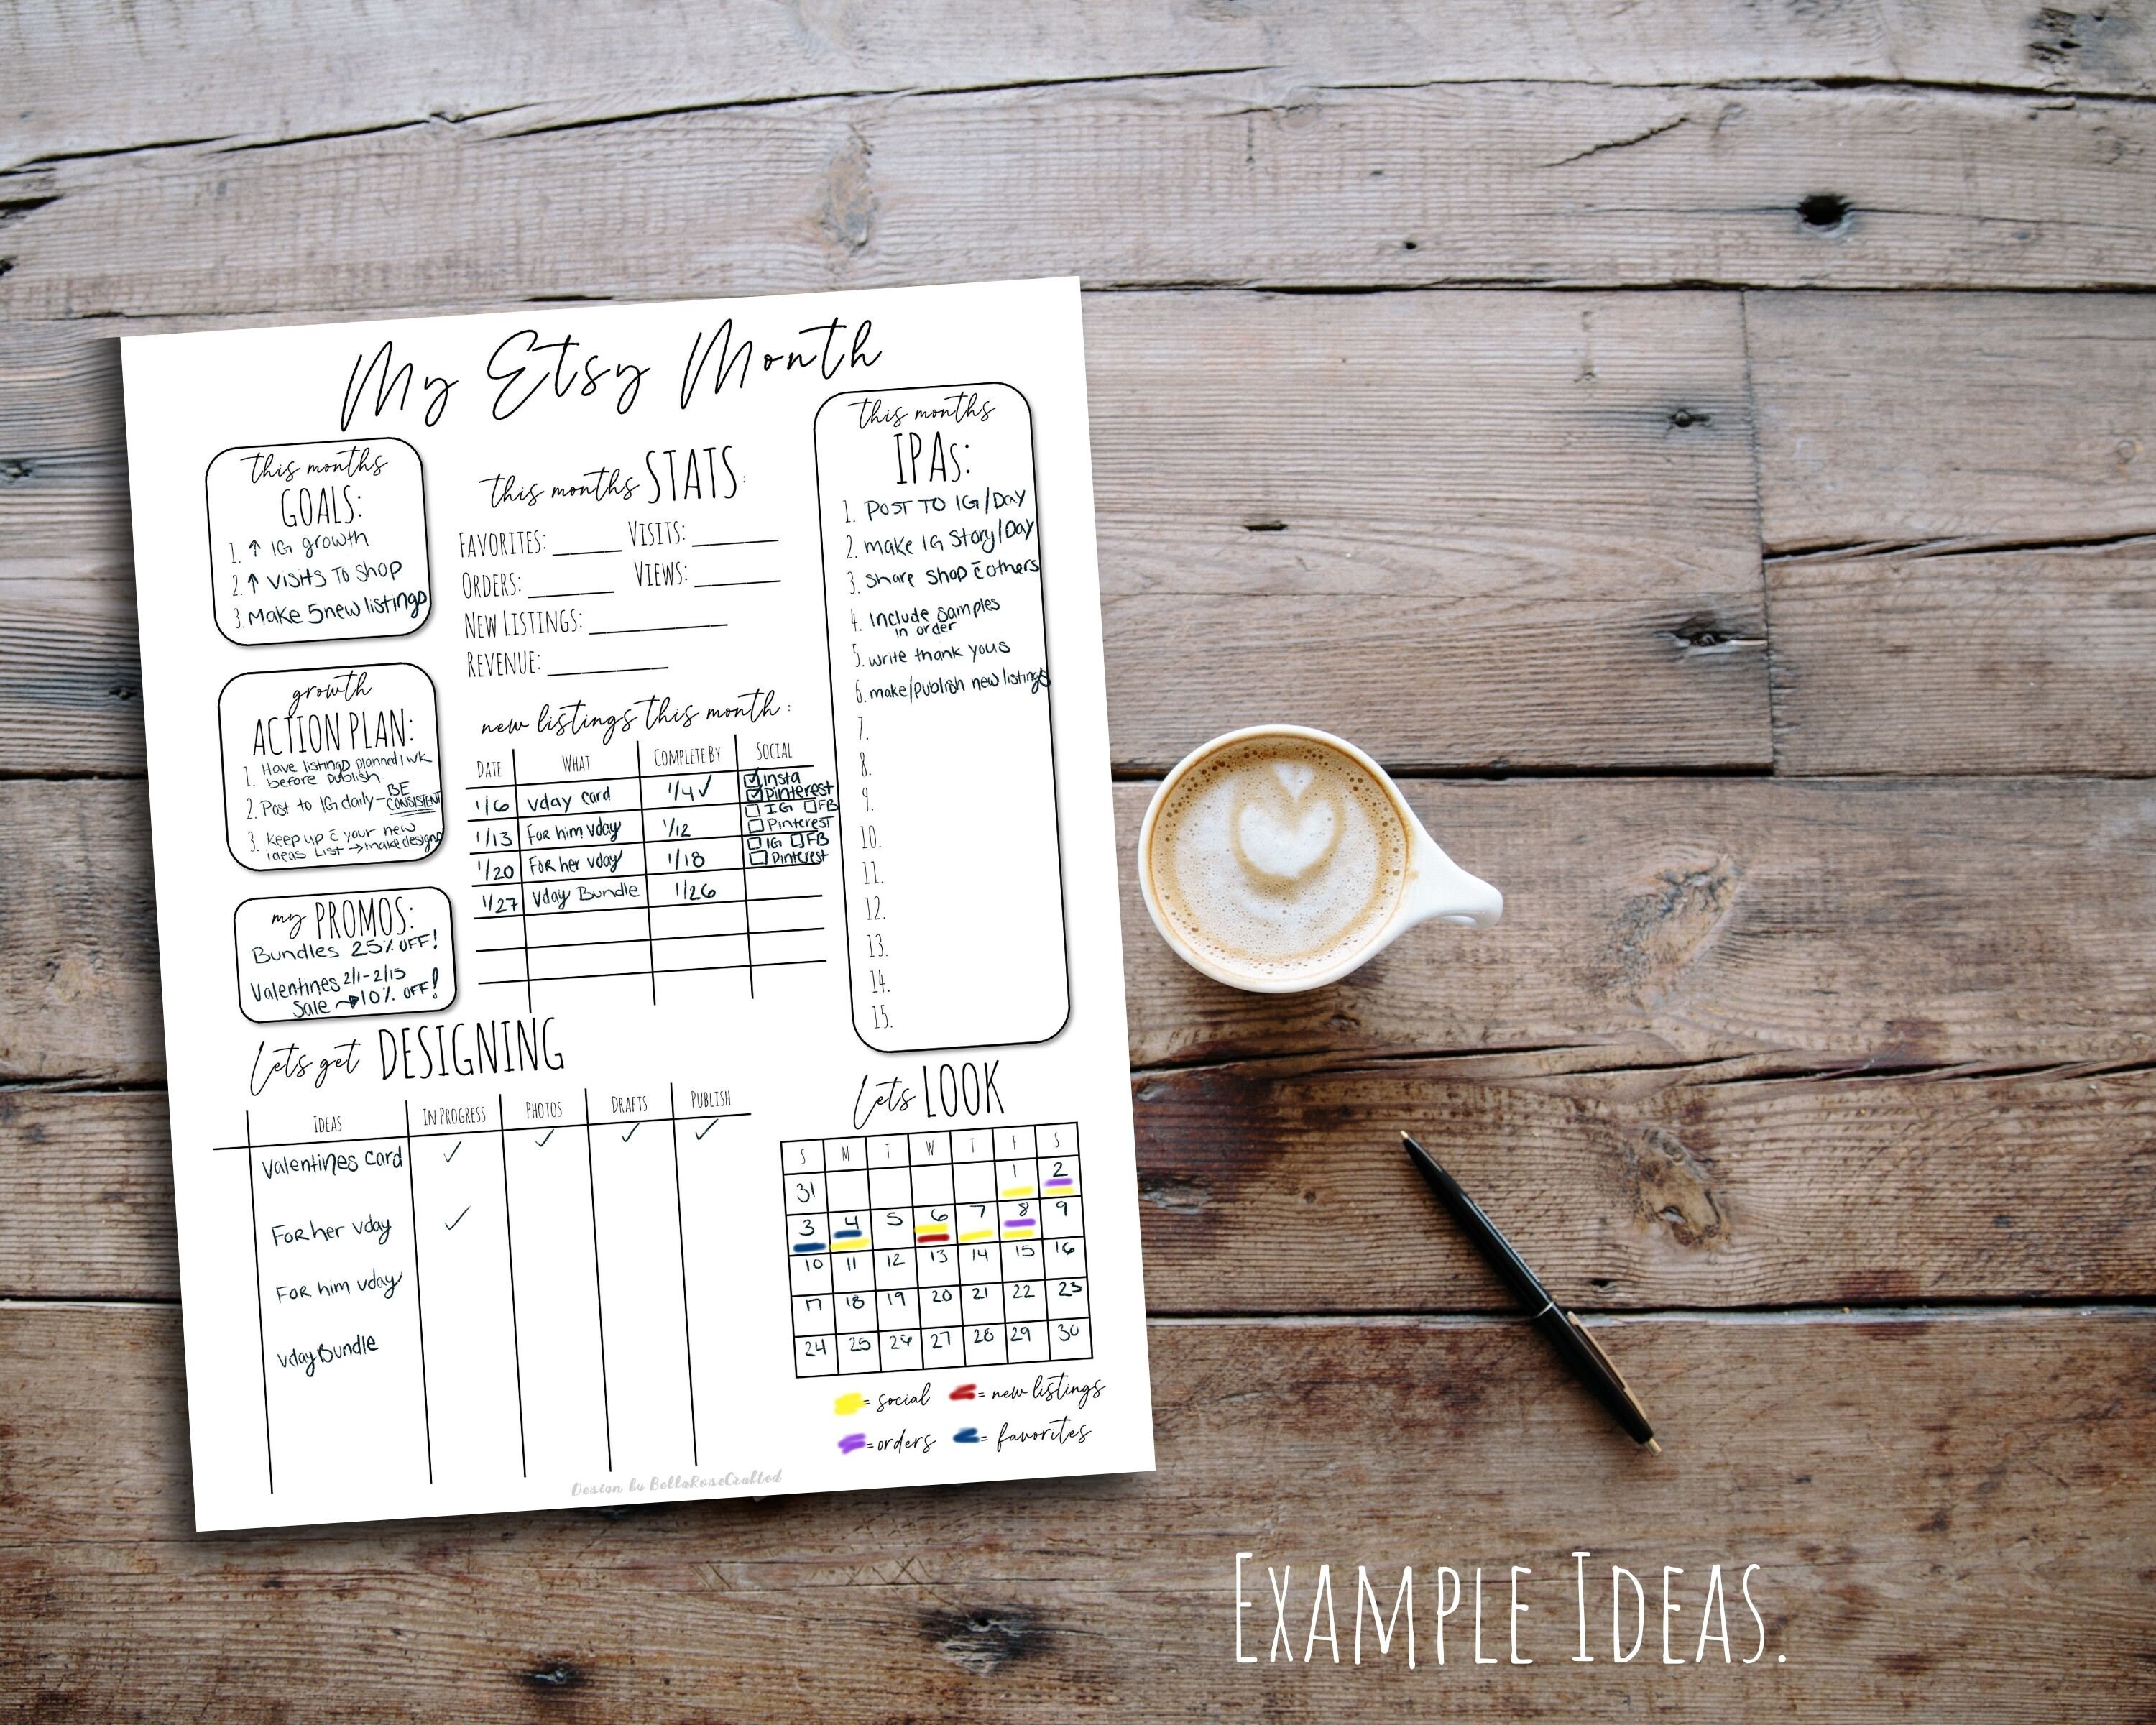 My Etsy Month
this months
GOALS:
1. ↑ IG growth
2. ↑ visits to shop
3. Make 5 new listings
growth
ACTION PLAN:
1. Have listings planned 1 wk
before publish
2. Post to IG daily - BE
CONSISTENT
3. Keep up c̄ your new
ideas list → make designs
my PROMOS:
Bundles 25% OFF!
Valentines 2/1-2/15
Sale → 10% OFF!
this months STATS:
FAVORITES: ______ VISITS: ________
ORDERS: ________ VIEWS: ________
NEW LISTINGS: _____________
REVENUE: ___________
new listings this month:
DATE WHAT COMPLETE BY SOCIAL
1/6 vday card 1/4 ✓ ☑ Insta
☑ Pinterest
1/13 For him vday 1/12 ☐ IG ☐ FB
☐ Pinterest
1/20 For her vday 1/18 ☐ IG ☐ FB
☐ Pinterest
1/27 Vday Bundle 1/26
this months
IPAs:
1. POST TO IG/Day
2. make IG Story/Day
3. Share shop c̄ others
4. Include Samples
in order
5. write thank yous
6. make/publish new listings
7.
8.
9.
10.
11.
12.
13.
14.
15.
lets get DESIGNING
IDEAS IN PROGRESS PHOTOS DRAFTS PUBLISH
Valentines Card ✓ ✓ ✓ ✓
For her vday ✓
For him vday
vday Bundle
lets LOOK
S M T W T F S
31 1 2
3 4 5 6 7 8 9
10 11 12 13 14 15 16
17 18 19 20 21 22 23
24 25 26 27 28 29 30
= social = new listings
= orders = favorites
Design by BellaRoseCrafted
EXAMPLE IDEAS.